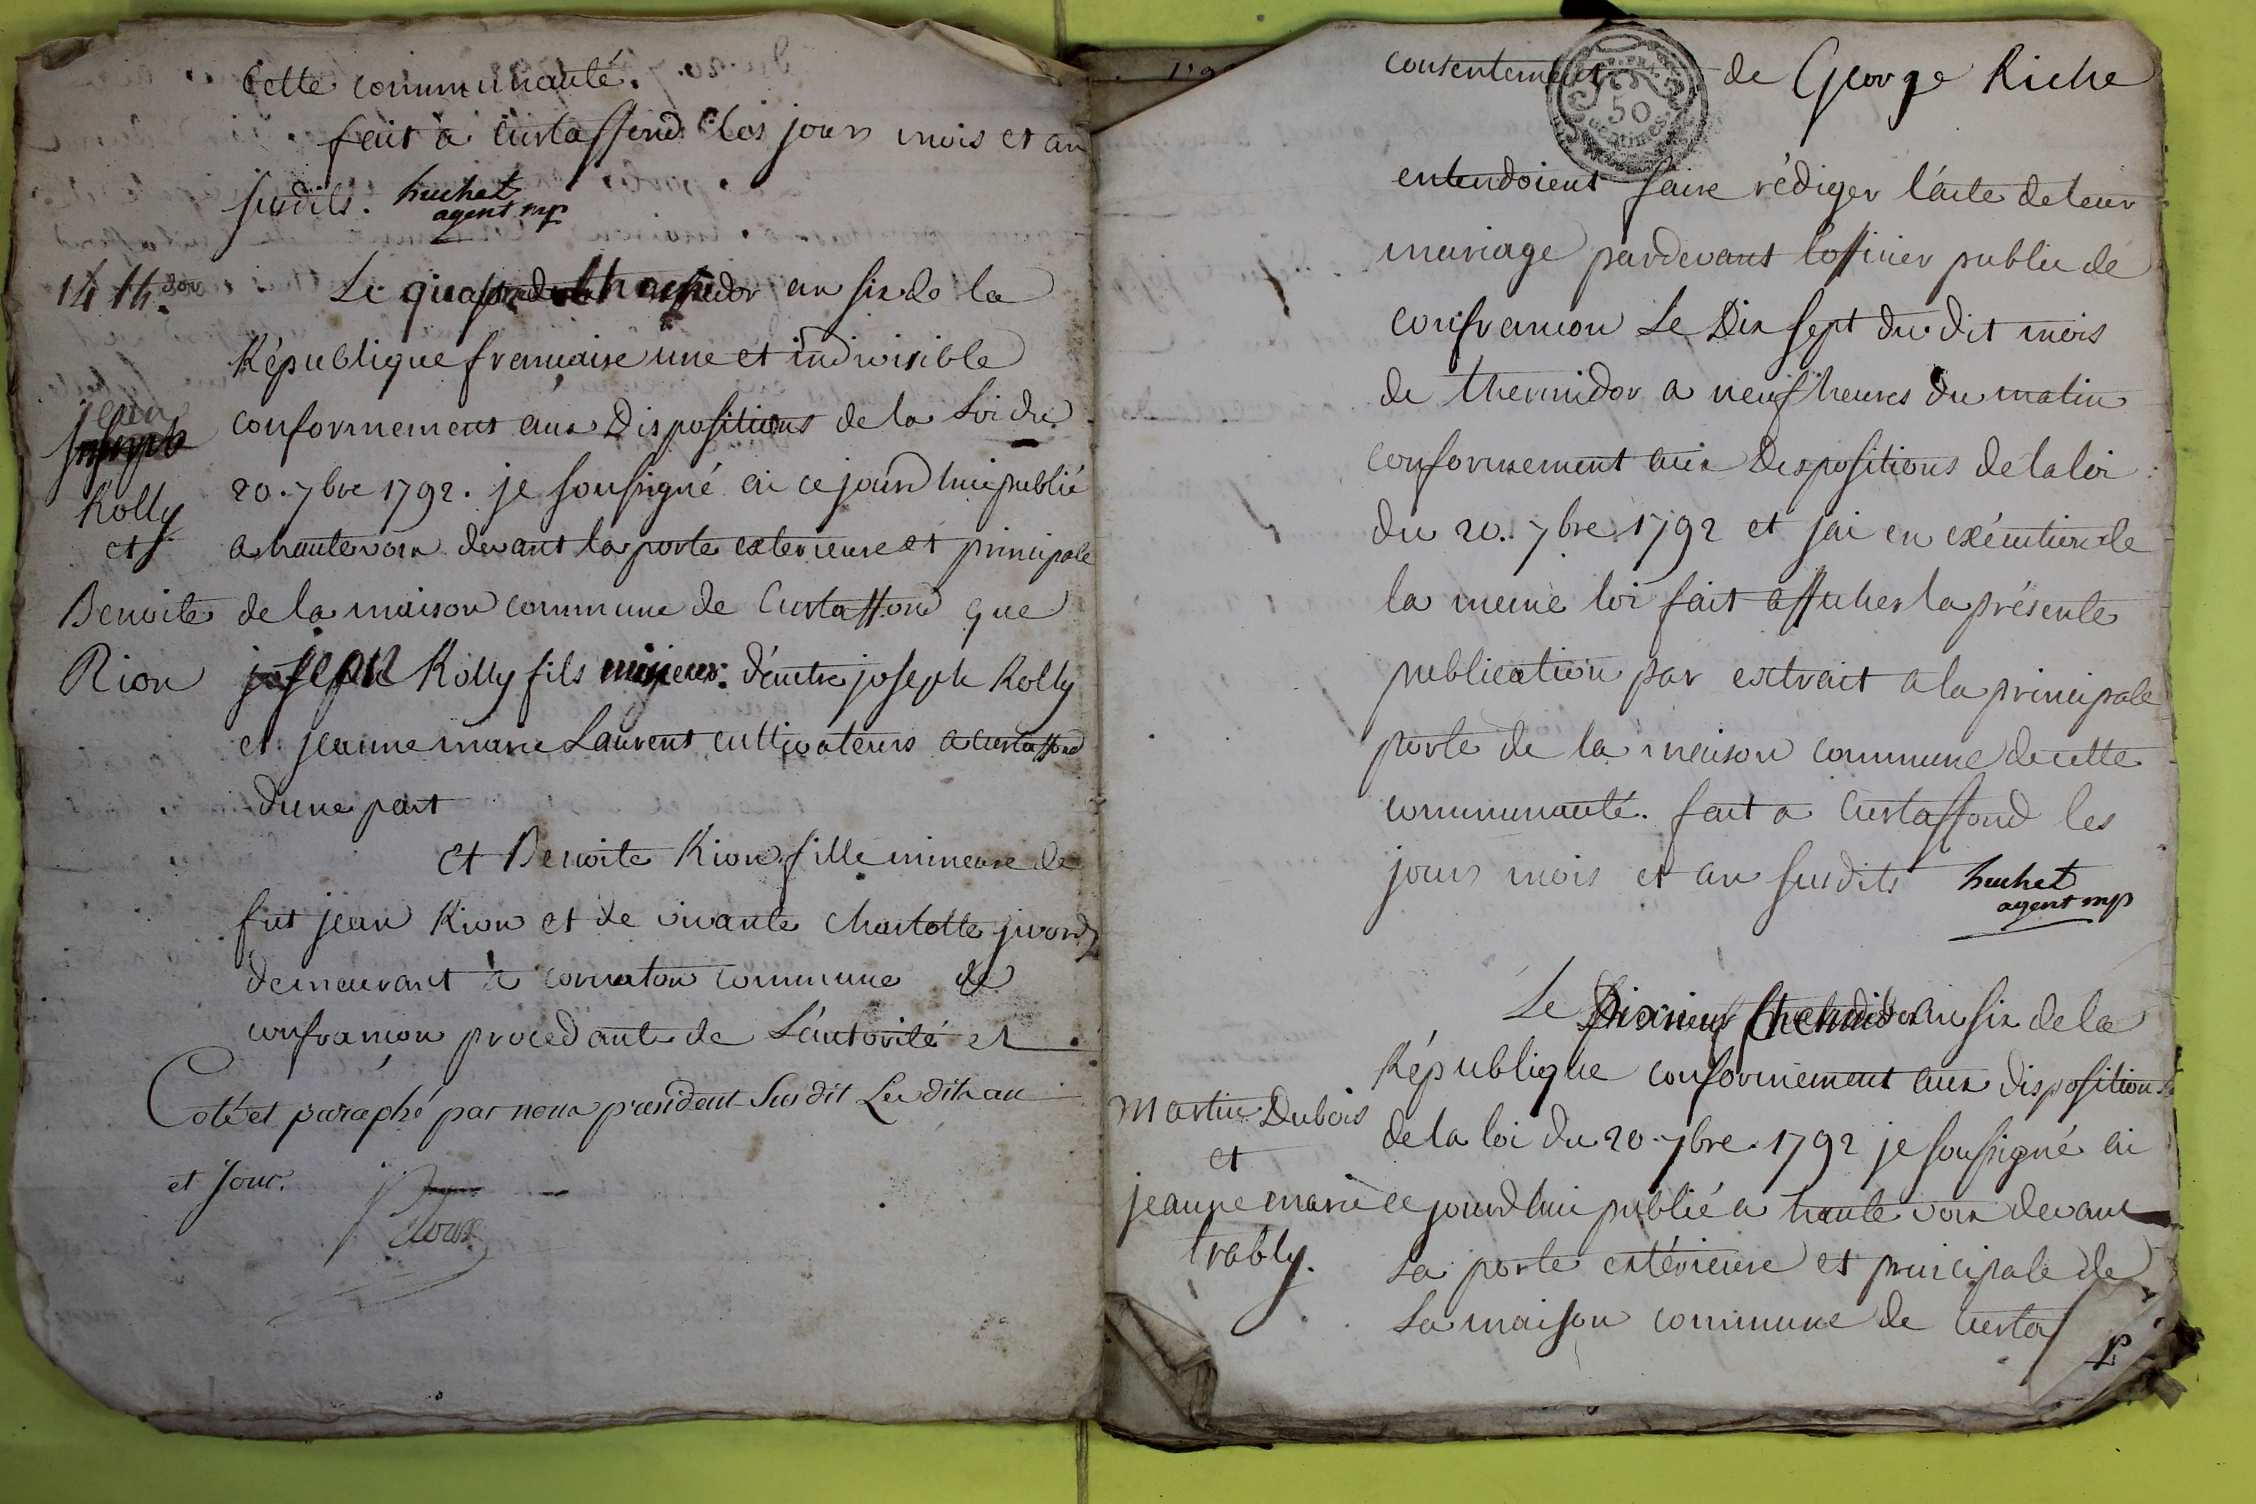 cette communauté.
fait a Curtaffond les jours mois et an
susdits. huchet
agent mp
14 th.dor
Le quatorze thermidor an six de la
République francaise une et indivisible
jean
conformement aux Dispositions de la Loi du
20. 7bre 1792. je soussigné ai ce jourd hui publié
Rolly
et
a haute voix devant la porte exterieure et principale
Benoite
de la maison commune de Curtaffond que
Rion
joseph Rolly fils mineur d'autre joseph Rolly
et jeanne marie Laurent cultivateurs a Curtaffond
d'une part
et Benoite Rion fille mineure de
fut jean Rion et de vivante Charlotte
demeurant à cornaton commune de
confrançon procedante de L'autorité et
Coté et paraphé par nous président Susdit Lesdits an
et Jour.
consentement de George Riche
50
centimes
entendoient faire rédiger l'acte de leur
mariage pardevant l'officier public de
confrancon Le Dix sept du dit mois
de thermidor a neuf heures du matin
conformement aux Dispositions de la loi
du 20. 7bre 1792 et jai en exécution de
la meme loi fait afficher la présente
publication par extrait a la principale
porte de la maison commune de cette
communauté. fait a Curtaffond les
jours mois et an susdits huchet
agent mp
Le thermidor an six de la
République conformement aux dispositions
Martin Dubois
de la loi du 20. 7bre. 1792 je soussigné ai
et
jeanne marie
ce jourd hui publié a haute voix devant
trably.
La porte extérieure et principale de
La maison commune de Curta